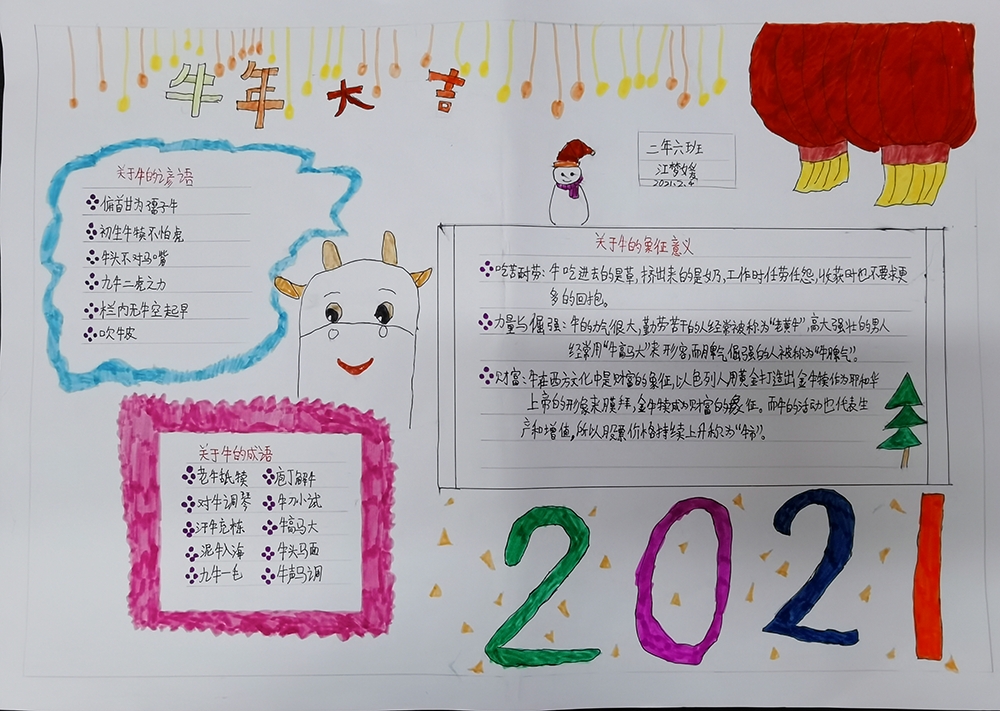 牛年大吉
二年六班
江梦媛
2021.2.4
关于牛的谚语
俯首甘为孺子牛
初生牛犊不怕虎
牛头不对马嘴
九牛二虎之力
栏内无牛空起早
吹牛皮
关于牛的象征意义
吃苦耐劳:牛吃进去的是草,挤出来的是奶,工作时任劳任怨,收获时也不要求更
多的回报。
力量与倔强:牛的力气很大,勤劳苦干的人经常被称为“老黄牛”,高大强壮的男人
经常用“牛高马大”来形容,而脾气倔强的人被称为“牛脾气”。
财富:牛在西方文化中是财富的象征,以色列人用黄金打造出金牛犊作为耶和华
上帝的形象来膜拜,金牛犊成为财富的象征。而牛的活动也代表生
产和增值,所以股票价格持续上升称为“牛市”。
关于牛的成语
老牛舐犊 庖丁解牛
对牛调琴 牛刀小试
汗牛充栋 牛高马大
泥牛入海 牛头马面
九牛一毛 牛声马调
2021